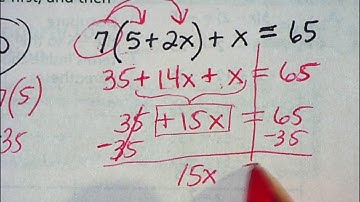 first, and then
7(5+2x)+x=65
35+14x+x=65
7(5)
35+15x=65
35
-35 -35
15x